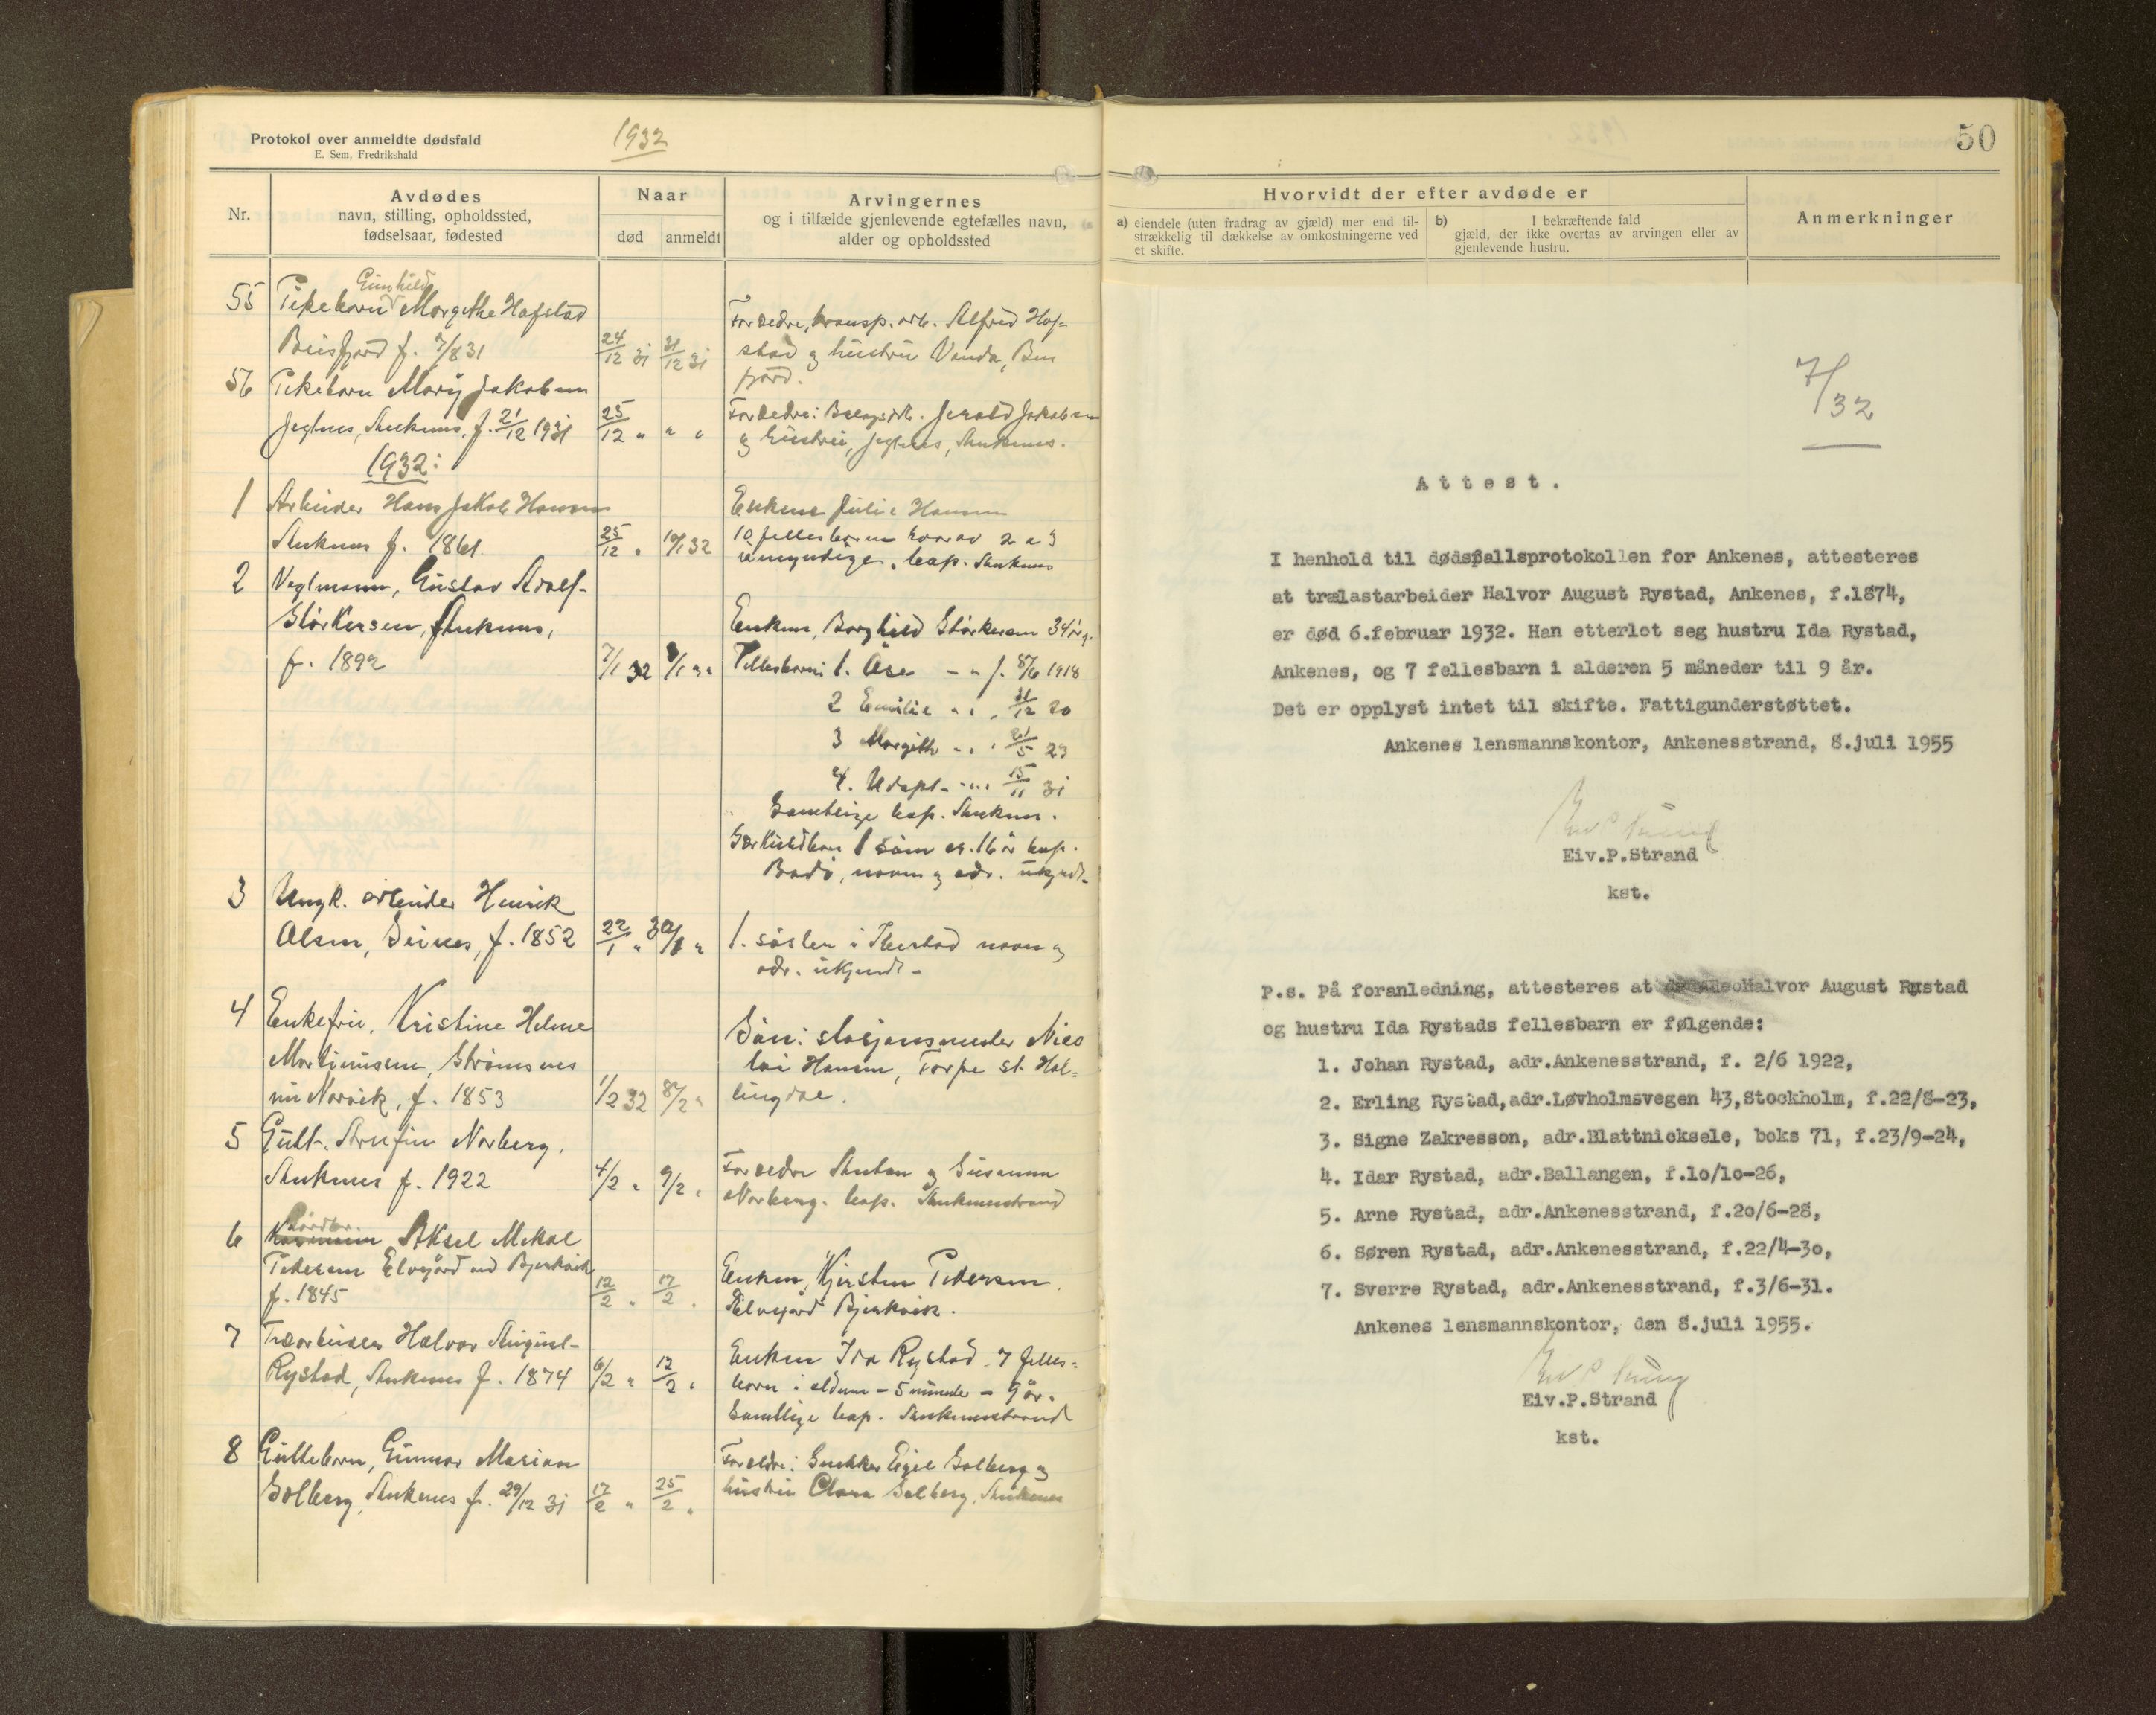 Protokol over anmeldte dødsfald
E. Sem, Fredrikshald
1932
Nr.
Avdødes
navn, stilling, opholdssted,
fødselsaar, fødested
Naar
død
anmeldt
Arvingernes
og i tilfælde gjenlevende egtefælles navn,
alder og opholdssted
55 Pikebarn Gunhild Margethe Hafstad
Beisfjord f. 7/8 31
24/12 31
31/12 31
Foreldre, transp. arb. Alfred Haf-
stad og hustru Vanda, Beis
fjord.
56 Pikebarn Mary Jakobsen
Ankenes, f. 21/12 1931
25/12 "
" "
Foreldre: Jakobsen
og hustru, Ankenes.
1932:
1 Arbeider Hans Jakob Hansen
Ankenes f. 1861
25/12 "
10/1 32
Enken Julie Hansen
10 fellesbarn hvorav 2 a 3
umyndige, Ankenes
2 Gustav Adolf
Størkersen, Ankenes,
f. 1892
7/1 32
Enken, Borghild Størkersen 34 år g.
Fellesbarn: 1. Åse - " f. 8/6 1918
2 Emilie " " , 31/12 20
3 Margith - " ' 21/5 23
4. Udøpt - " " 15/11 31
Samtlige bop. Ankenes.
Særkuldbarn 1 sønn ca. 16 år bop.
Bodø, navn og adr. ukjendt-
3 Ungk. arbeider Henrik
Olsen, f. 1852
22/1 "
1. søster i navn og
adr. ukjendt -
4 Enkefru, Kristine Helene
Martinussen, Strømsnes
Narvik, f. 1853
1/2 32
8/2 "
Sønn: stasjonsmester Nico
lai Hansen, Torpe st. Hal-
lingdal.
5 Gutt. Norberg,
Ankenes f. 1922
4/2 "
9/2 "
Foreldre og Susanna
Norberg. bop. Ankenesstrand
6 Aksel Mikal
Pedersen Elvegård ved Bjerkvik
f. 1845
12/2 "
17/2 "
Enken, Kjersten Pedersen
Elvegård Bjerkvik.
7 Halvor August
Rystad, Ankenes f. 1874
6/2 "
12/2 "
Enken Ida Rystad, 7 felles-
barn i alderen - 5 måneder - 9 år.
Samtlige bop. Ankenesstrand
8 Guttebarn, Gunnar Marian
Solberg, Ankenes f. 29/12 31
17/2 "
25/2 "
Foreldre: Snekker Eigil Solberg og
hustru Clara Solberg, Ankenes
50
Hvorvidt der efter avdøde er
a) eiendele (uten fradrag av gjæld) mer end til-
strækkelig til dækkelse av omkostningerne ved
et skifte.
b) I bekræftende fald
gjæld, der ikke overtas av arvingen eller av
gjenlevende hustru.
Anmerkninger
7/32
Attest.
I henhold til dødsfallsprotokollen for Ankenes, attesteres
at trælastarbeider Halvor August Rystad, Ankenes, f.1874,
er død 6.februar 1932. Han etterlot seg hustru Ida Rystad,
Ankenes, og 7 fellesbarn i alderen 5 måneder til 9 år.
Det er opplyst intet til skifte. Fattigunderstøttet.
Ankenes lensmannskontor, Ankenesstrand, 8.juli 1955
Eiv.P.Strand
Eiv.P.Strand
kst.
P.s. På foranledning, attesteres at Halvor August Rystad
og hustru Ida Rystads fellesbarn er følgende:
1. Johan Rystad, adr.Ankenesstrand, f. 2/6 1922,
2. Erling Rystad,adr.Løvholmsvegen 43,Stockholm, f.22/8-23,
3. Signe Zakresson, adr.Blattnicksele, boks 71, f.23/9-24,
4. Idar Rystad, adr.Ballangen, f.1o/1o-26,
5. Arne Rystad, adr.Ankenesstrand, f.2o/6-28,
6. Søren Rystad, adr.Ankenesstrand, f.22/4-3o,
7. Sverre Rystad, adr.Ankenesstrand, f.3/6-31.
Ankenes lensmannskontor, den 8.juli 1955.
Eiv P Strand
Eiv.P.Strand
kst.